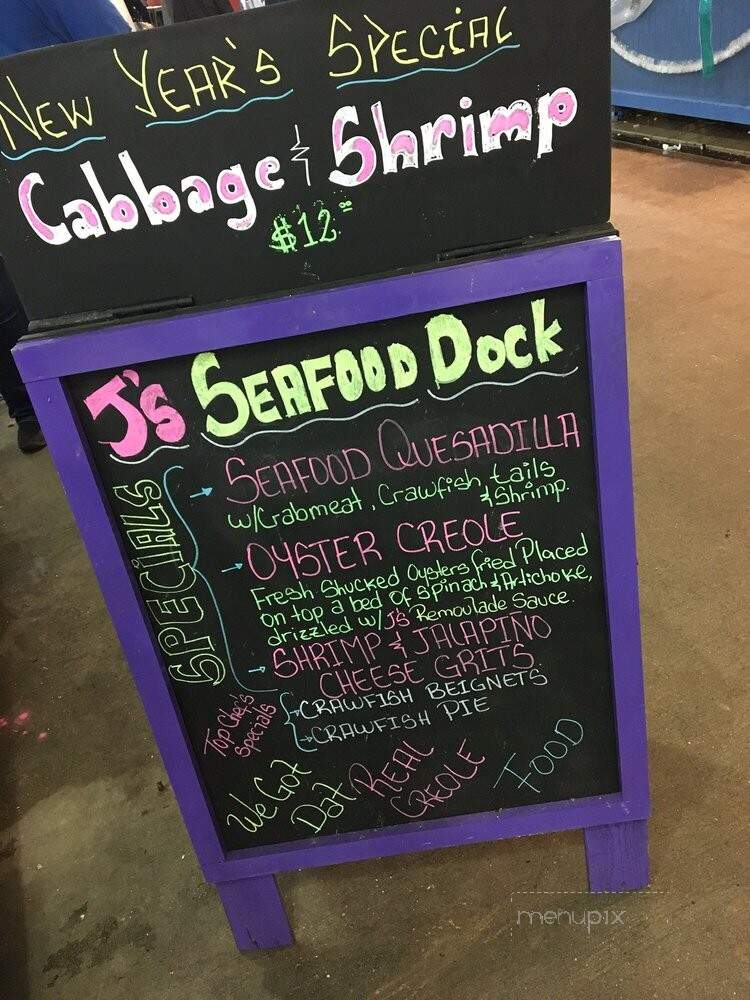 New Year's Special
Cabbage & Shrimp
$12.00
J's Seafood Dock
SPECIALS
SEAFOOD QUESADILLA
w/Crabmeat, Crawfish, tails
& Shrimp.
OYSTER CREOLE
Fresh Shucked Oysters fried Placed
on top a bed of Spinach & Artichoke,
drizzled w/ J's Remoulade Sauce.
SHRIMP & JALAPINO
CHEESE GRITS
Top Chef's
Specials
CRAWFISH BEIGNETS
CRAWFISH PIE
We Got
Dat
REAL
CREOLE
FOOD
menupix